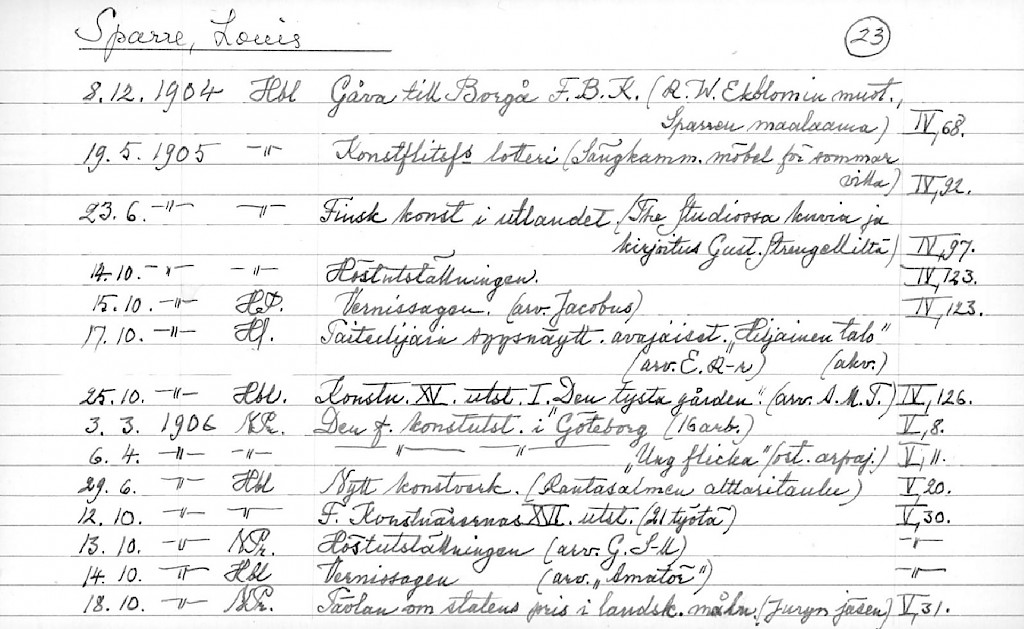 Sparre, Louis 23
8.12.1904 Hbl Gåva till Borgå F.B.K. (R.W. Ekblomin muot.,
Sparren maalaama) IV, 68.
19.5.1905 -"- Konstflitsfs lotteri (Sängkamm. möbel för sommar
villa) IV, 92.
23.6. -"- -"- Finsk konst i utlandet. (The Studiossa kuvia ja
kirjoitus Gust. Strengelliltä) IV, 97.
14.10. -"- -"- Höstutställningen. IV, 123.
15.10. -"- Hbl. Vernissagen. (arv. Jacobus) IV, 123.
17.10. -"- Hf. Taiteilijain syysnäytt. avajaiset. "Hiljainen talo"
(arv. E. R-r) (akv.)
25.10. -"- Hbl. Konstn. XV. utst. I. "Den tysta gården". (arv. A.M.T.) IV, 126.
3.3. 1906 N.Pr. Den f. konstutst. i Göteborg (16 arb.) V, 8.
6.4. -"- -"- -"- -"- "Ung flicka" (öst. arpaj.) V, 11.
29.6. -"- Hbl Nytt konstverk. (Rantasalmen alttaritaulu) V, 20.
12.10. -"- -"- F. Konstnärernas XVI. utst. (21 työtä) V, 30.
13.10. -"- N.Pr. Höstutställningen (arv. G. S-ll) -"-
14.10. -"- Hbl Vernissagen (arv. "Amatör") -"-
18.10. -"- N.Pr. Tävlan om statens pris i landsk. måln. (Juryn jäsen) V, 31.